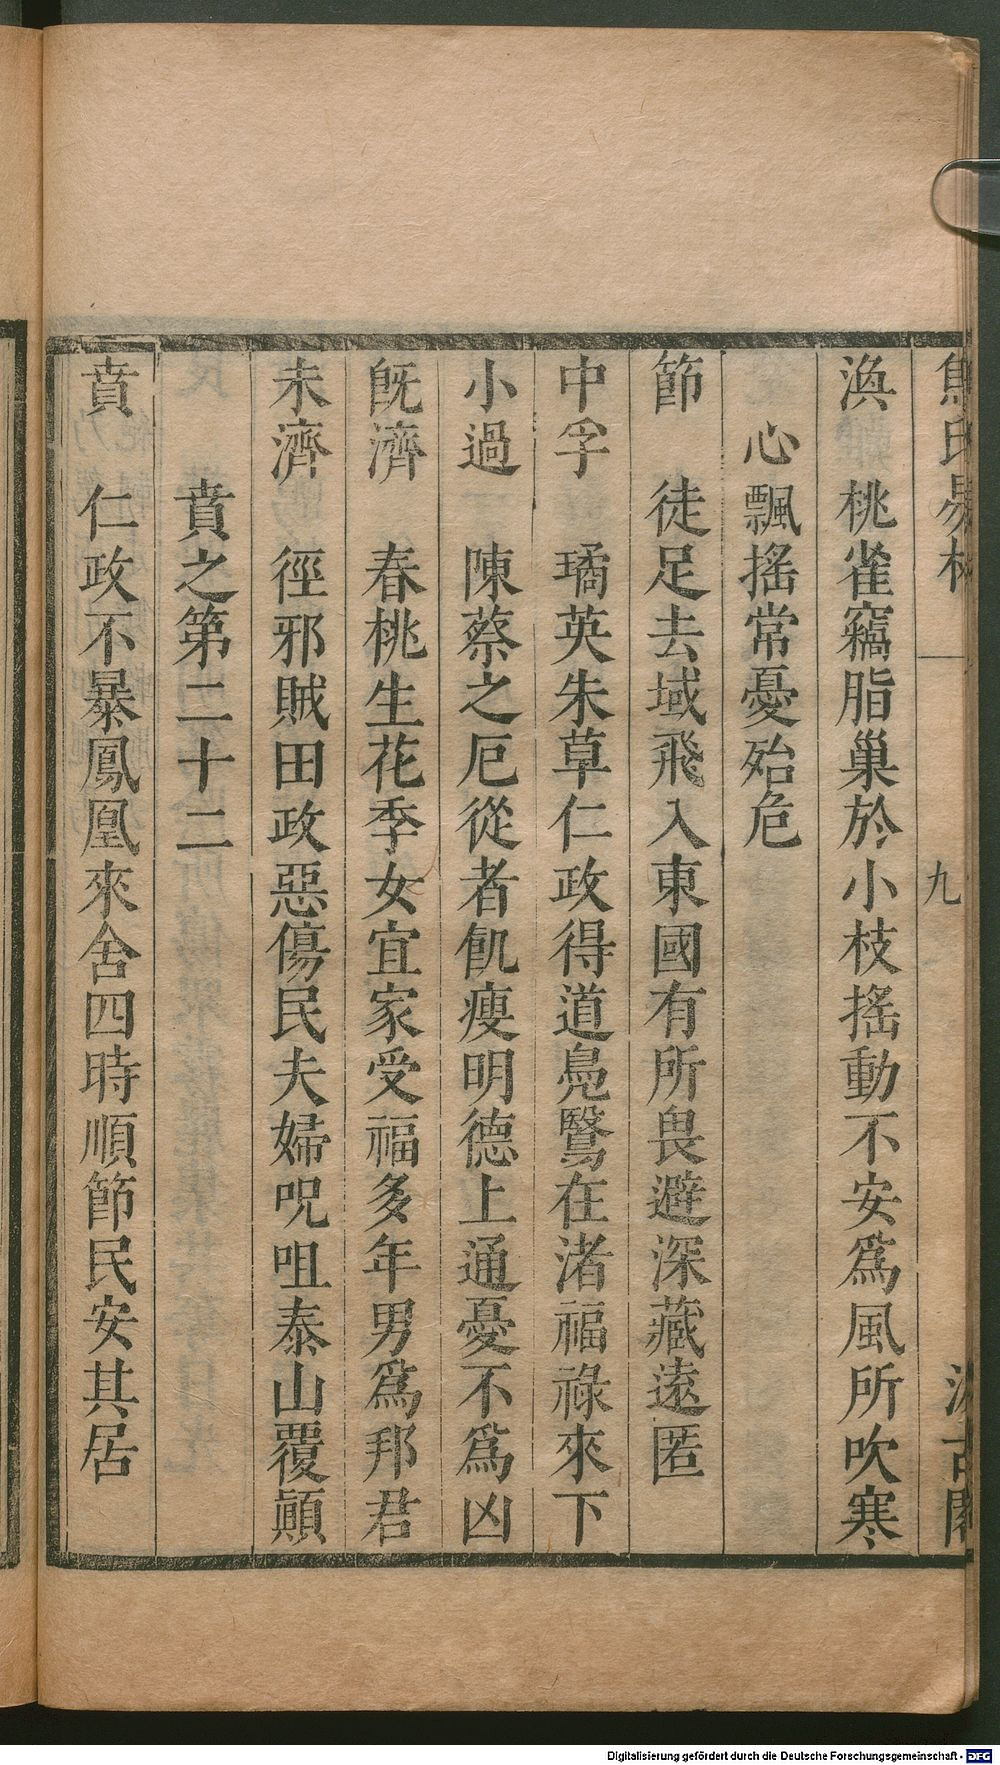 焦氏易林
九
汲古閣
渙　桃雀竊脂巢於小枝搖動不安爲風所吹寒
心飄搖常憂殆危
節　徒足去域飛入東國有所畏避深藏遠匿
中孚　璚英朱草仁政得道鳧鷖在渚福祿來下
小過　陳蔡之厄從者飢瘦明德上通憂不爲凶
旣濟　春桃生花季女宜家受福多年男爲邦君
未濟　徑邪賊田政惡傷民夫婦呪咀泰山覆顚
賁之第二十二
賁　仁政不暴鳳凰來舍四時順節民安其居
Digitalisierung gefördert durch die Deutsche Forschungsgemeinschaft - DFG